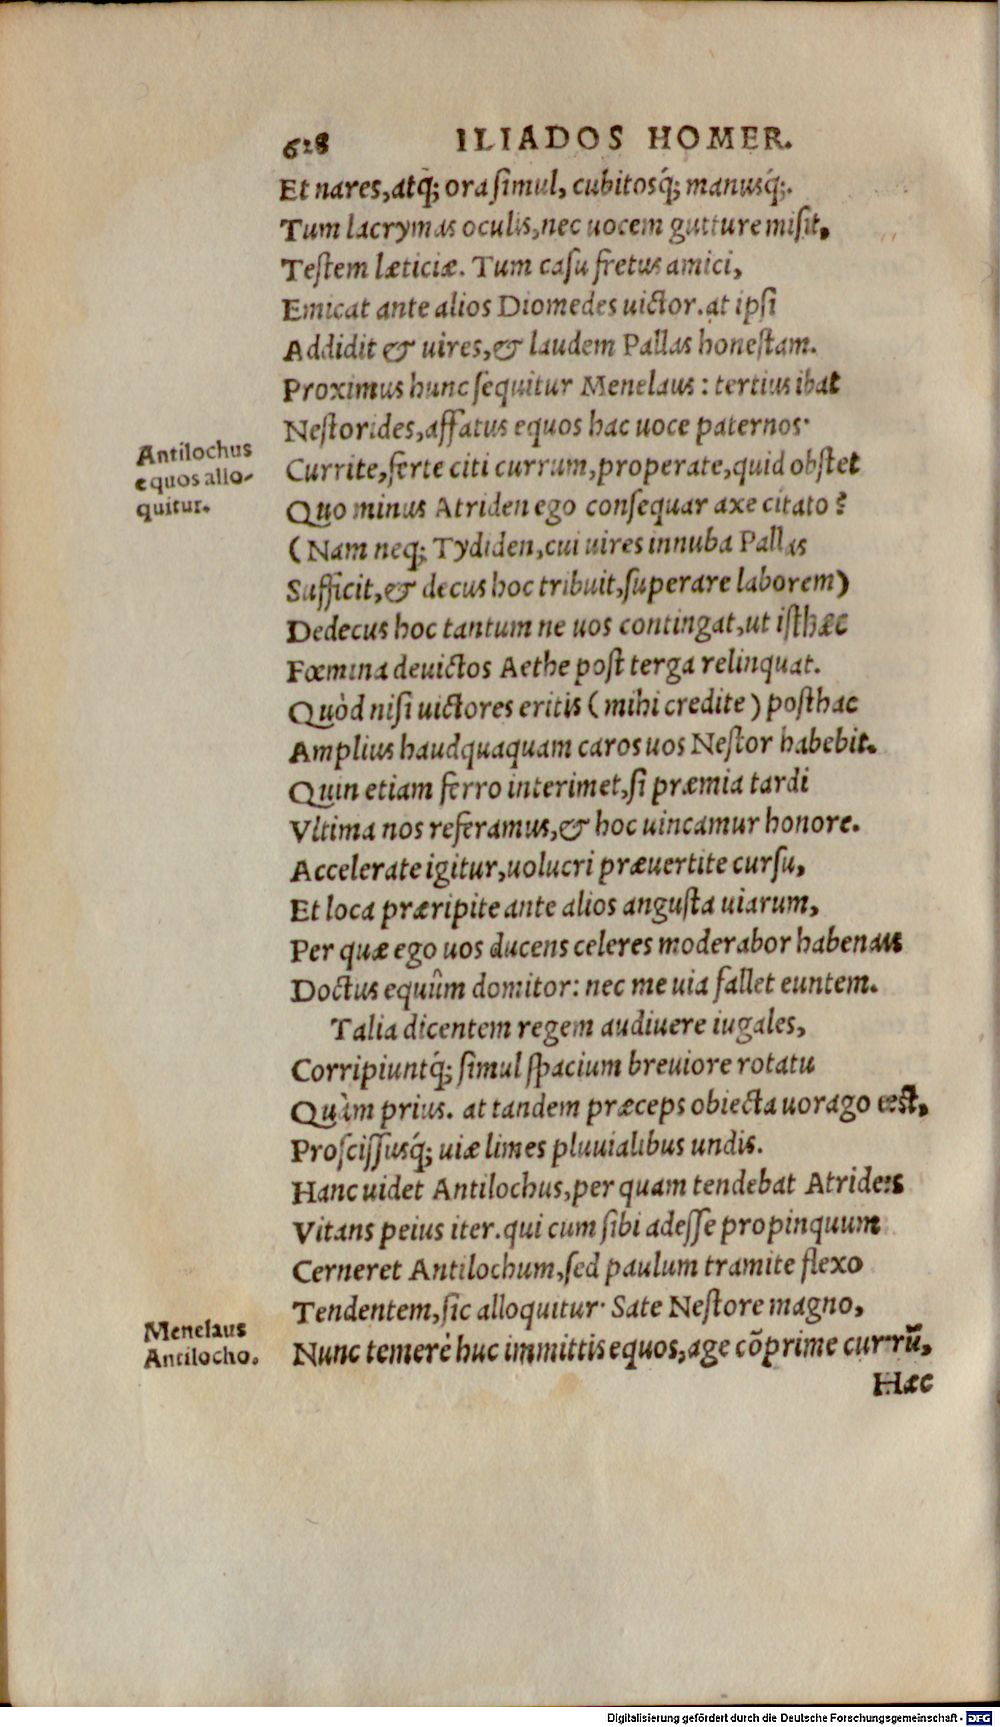 628 ILIADOS HOMER.
Et nares, atq́; ora simul, cubitosq́; manusq́;.
Tum lacrymas oculis, nec uocem gutture misit,
Testem læticiæ. Tum casu fretus amici,
Emicat ante alios Diomedes uictor. at ipsi
Addidit & uires, & laudem Pallas honestam.
Proximus hunc sequitur Menelaus: tertius ibat
Nestorides, affatus equos hac uoce paternos·
Antilochus
equos allo-
quitur.
Currite, ferte citi currum, properate, quid obstet
Quo minus Atriden ego consequar axe citato?
(Nam neq; Tydiden, cui uires innuba Pallas
Sufficit, & decus hoc tribuit, superare laborem)
Dedecus hoc tantum ne uos contingat, ut isthæc
Fœmina deuictos Aethe post terga relinquat.
Quòd nisi uictores eritis (mihi credite) posthac
Amplius haudquaquam caros uos Nestor habebit.
Quin etiam ferro interimet, si præmia tardi
Vltima nos referamus, & hoc uincamur honore.
Accelerate igitur, uolucri præuertite cursu,
Et loca præripite ante alios angusta uiarum,
Per quæ ego uos ducens celeres moderabor habenas
Doctus equûm domitor: nec me uia fallet euntem.
Talia dicentem regem audiuere iugales,
Corripiuntq́; simul spacium breuiore rotatu
Quàm prius. at tandem præceps obiecta uorago est,
Proscissusq́; uiæ limes pluuialibus undis.
Hanc uidet Antilochus, per quam tendebat Atrides
Vitans peius iter. qui cum sibi adesse propinquum
Cerneret Antilochum, sed paulum tramite flexo
Tendentem, sic alloquitur· Sate Nestore magno,
Menelaus
Antilocho.
Nunc temerè huc immittis equos, age cõprime currũ,
Hæc
Digitalisierung gefördert durch die Deutsche Forschungsgemeinschaft - DFG